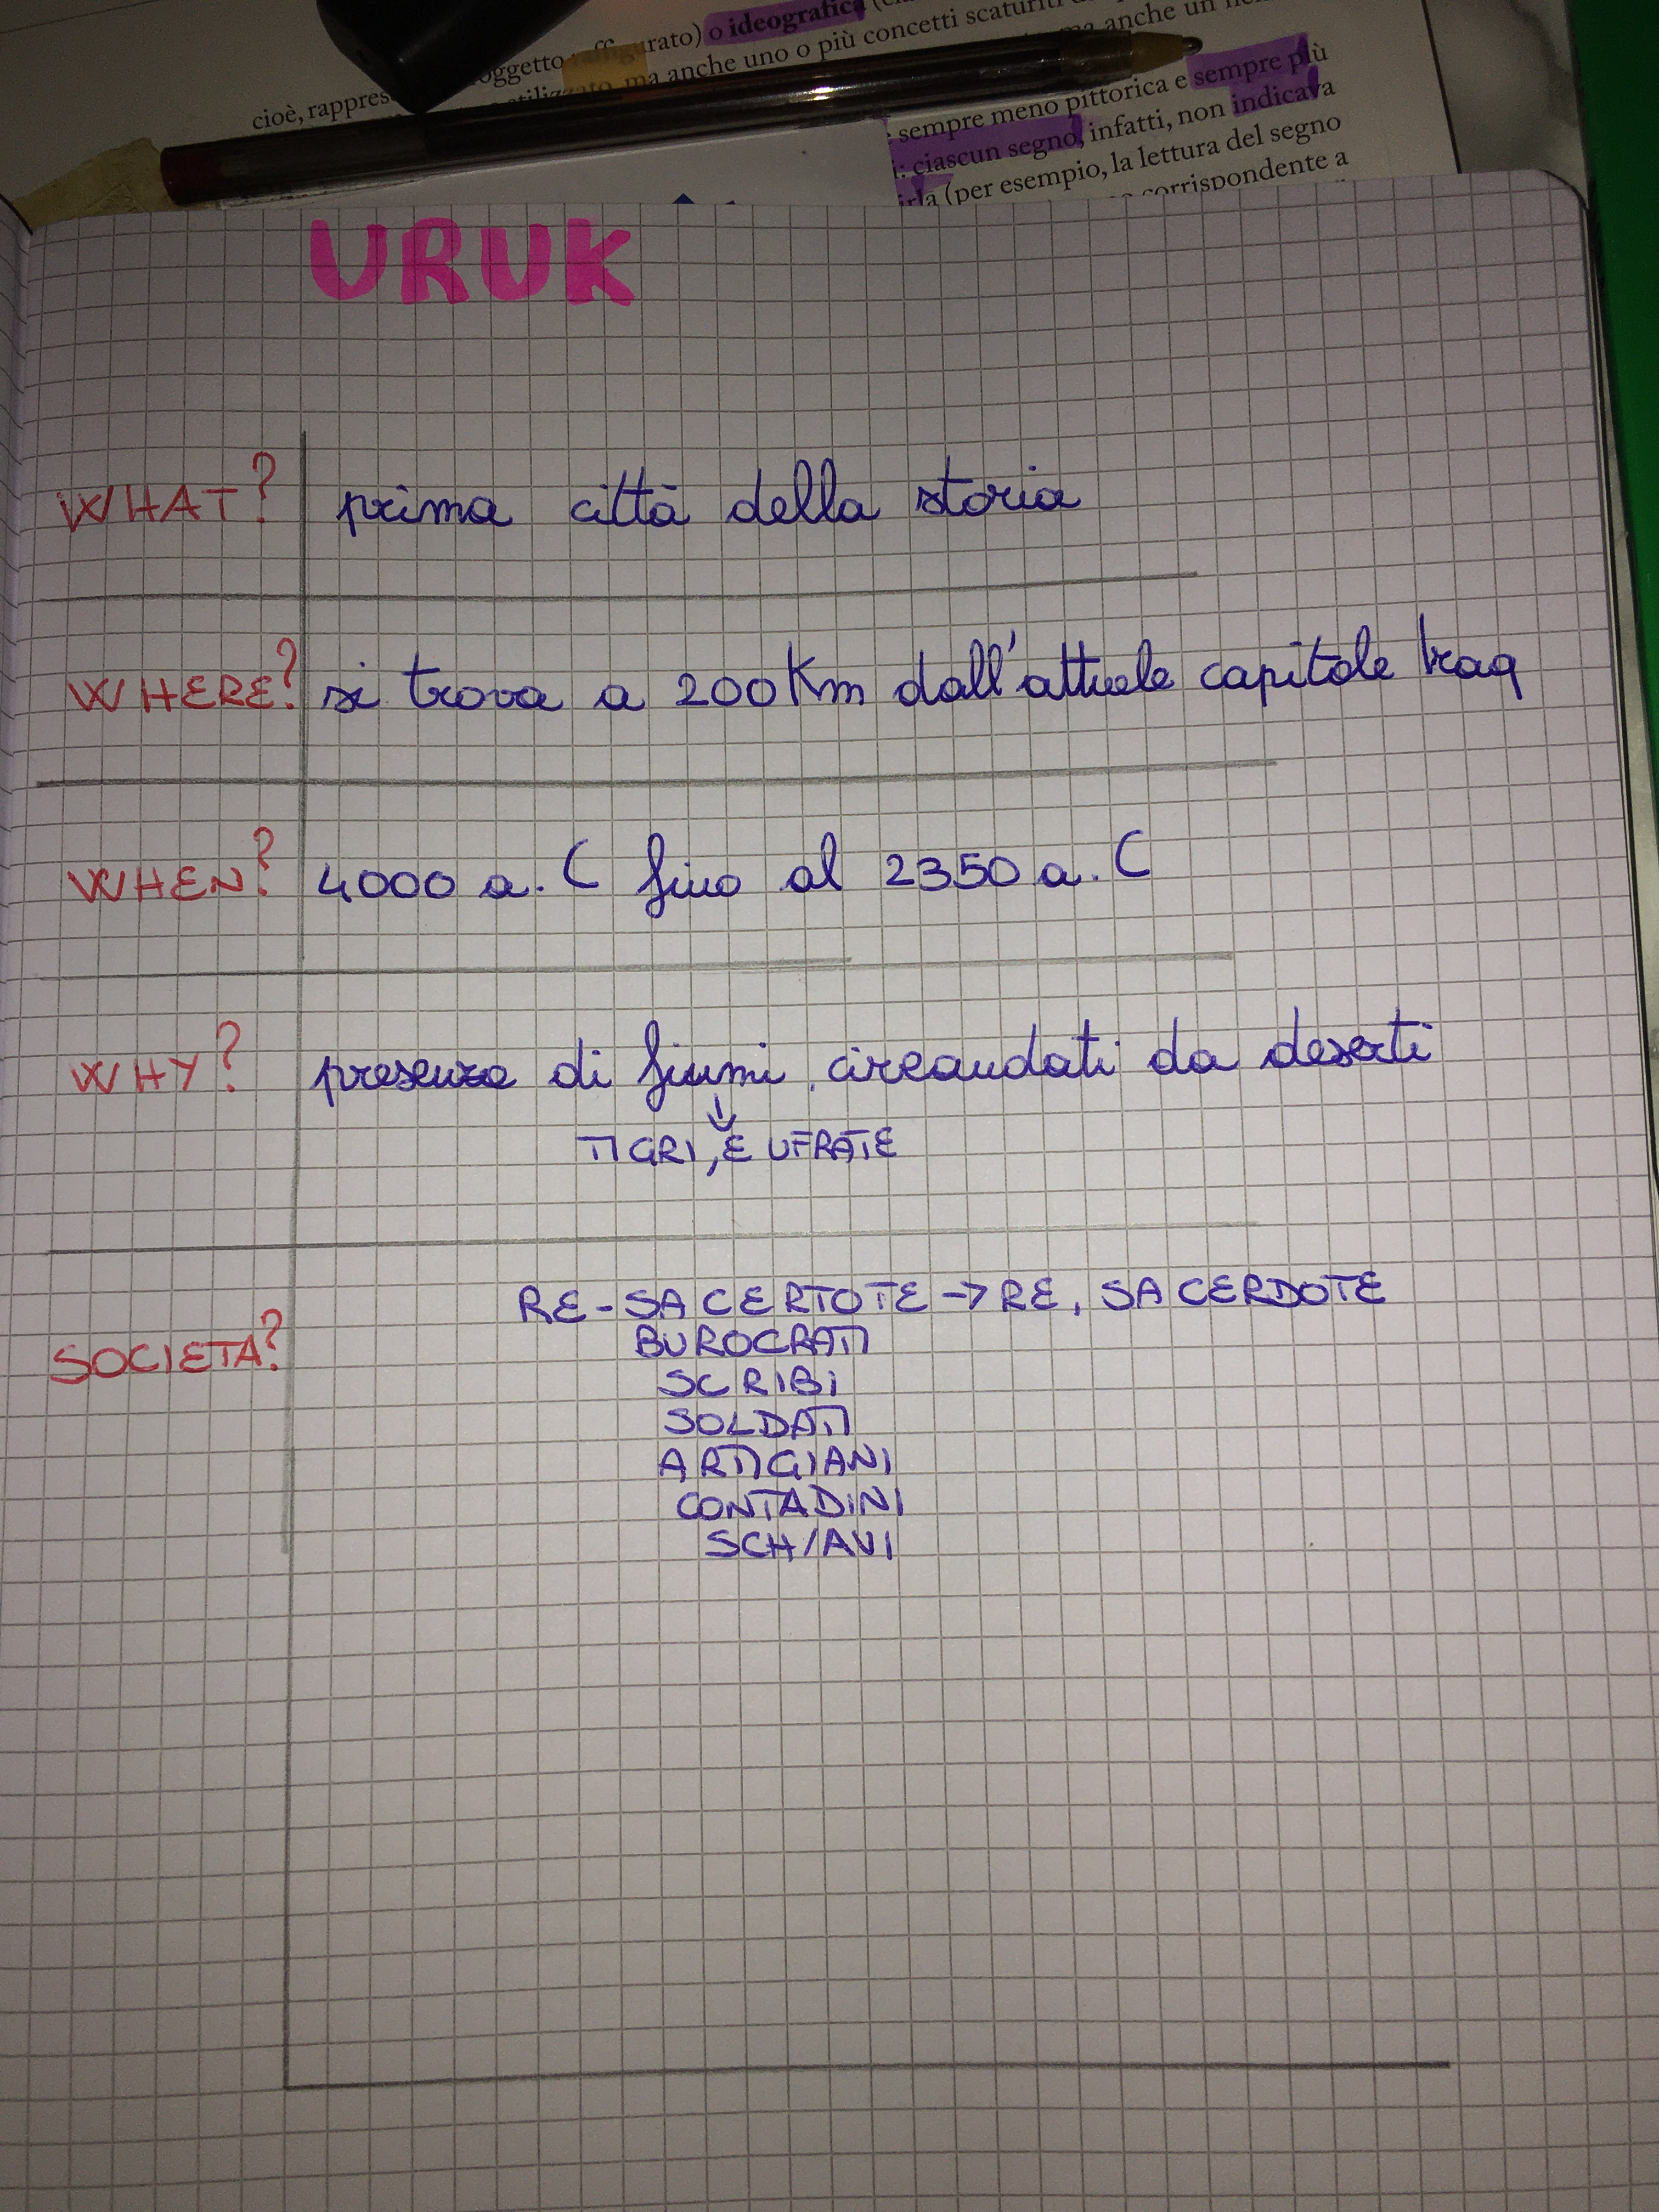 oggetto raffigurato) o ideografica
cioè, rappres
ma anche uno o più concetti scaturiti
ma anche un
sempre meno pittorica e sempre più
i: ciascun segno, infatti, non indicava
irla (per esempio, la lettura del segno
corrispondente a
URUK
WHAT? prima città della storia
WHERE? si trova a 200 Km dall'attuale capitale Iraq
WHEN? 4000 a.C fino al 2350 a.C
WHY? presenza di fiumi, circondati da deserti
TIGRI, E UFRATE
RE-SACERTOTE → RE, SACERDOTE
BUROCRATI
SOCIETA?
SCRIBI
SOLDATI
ARTIGIANI
CONTADINI
SCHIAVI